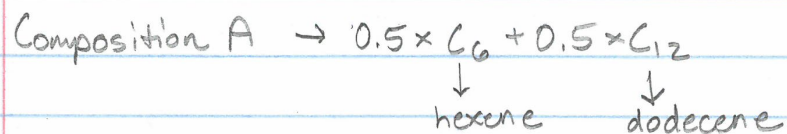 Composition A → 0.5 × C₆ + 0.5 × C₁₂
↓ ↓
hexene dodecene